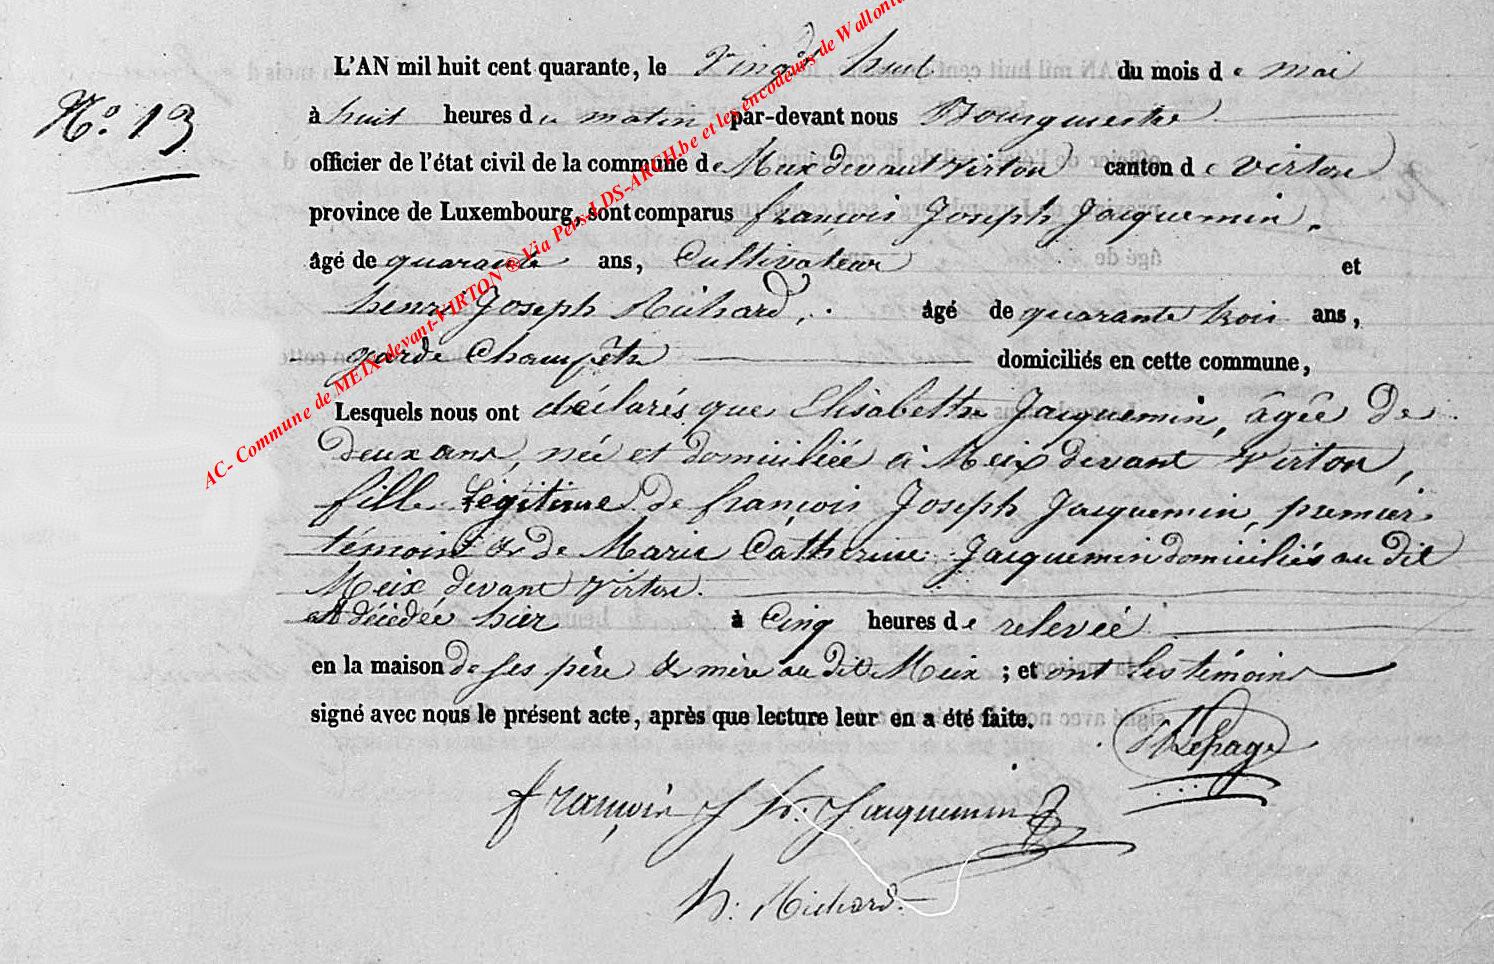 N.° 13
L'AN mil huit cent quarante, le Vingt huit du mois de mai
à huit heures du matin par-devant nous Bourgmestre
officier de l'état civil de la commune de Meix devant Virton canton de Virton
province de Luxembourg, sont comparus françois Joseph Jacquemin,
âgé de quarante ans, Cultivateur et
henri Joseph Richard, âgé de quarante trois ans,
garde Champêtre domiciliés en cette commune,
Lesquels nous ont déclarés que Elisabethe Jacquemin, âgée De
Deux ans, née et domiciliée à Meix devant Virton,
fille Légitime de françois Joseph Jacquemin, premier
témoint & de Marie Catherine Jacquemin domiciliés au dit
Meix devant Virton.
est décédée hier à Cinq heures de relevée
en la maison de ses père & mère au dit Meix ; et ont les témoins
signé avec nous le présent acte, après que lecture leur en a été faite.
Lepage
françois J h: Jacquemin
h: Richard.
AC- Commune de MEIX-devant-VIRTON ® Via Pers-LDS-ARCH.be et les encodeurs de Wallonie